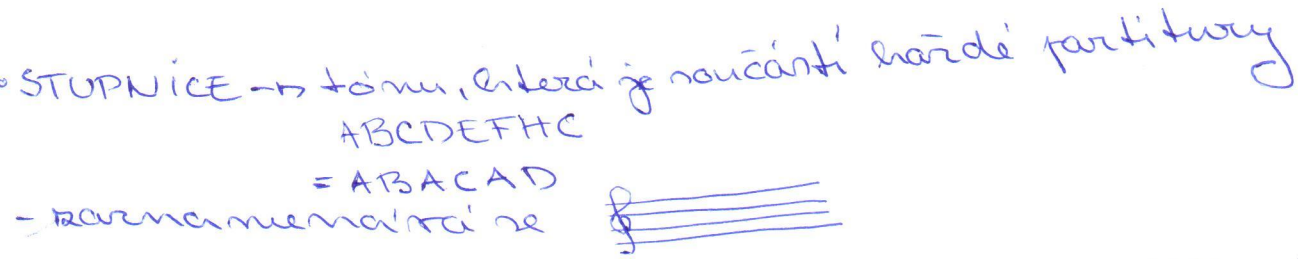 • STUPNICE → tónu, která je součástí každé partitury
ABCDEFHC
= ABACAD
- zaznamenává se